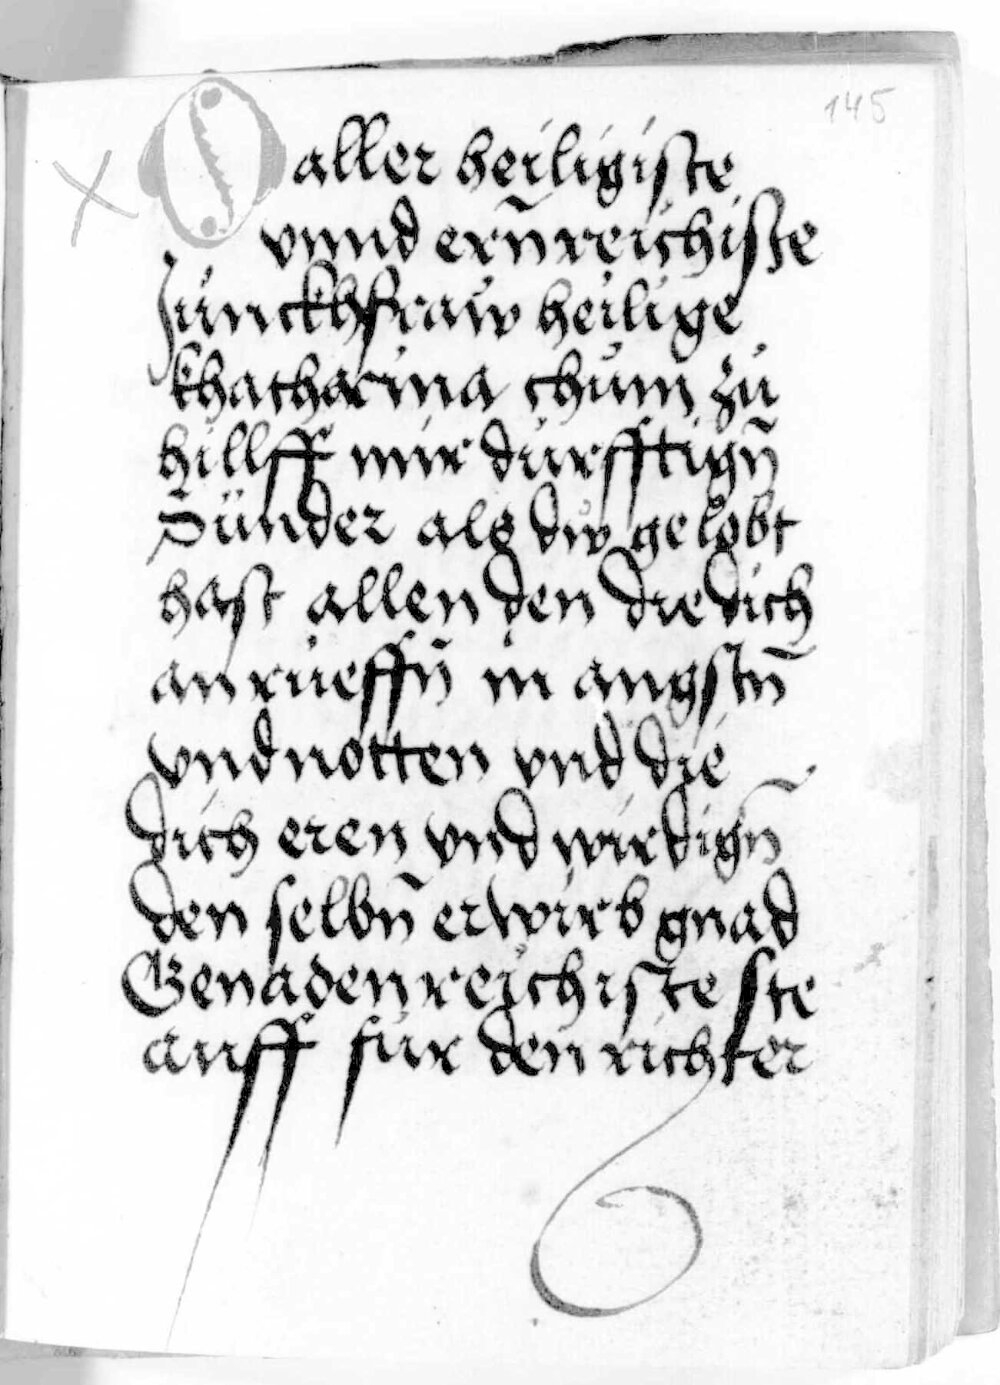 145
O aller heiligiste
vnnd ern̄reichiste
Junckhfraw heilige
khatharina chum zu
hillff mir durfftign̄
Sünder als dw gelobt
hast allen den die dich
an rueffn̄ in angstn̄
vnd notten vnd die
dich eren vnd wirdign̄
den selbn̄ erwirb gnad
Genadenreichiste ste
auff für den richter